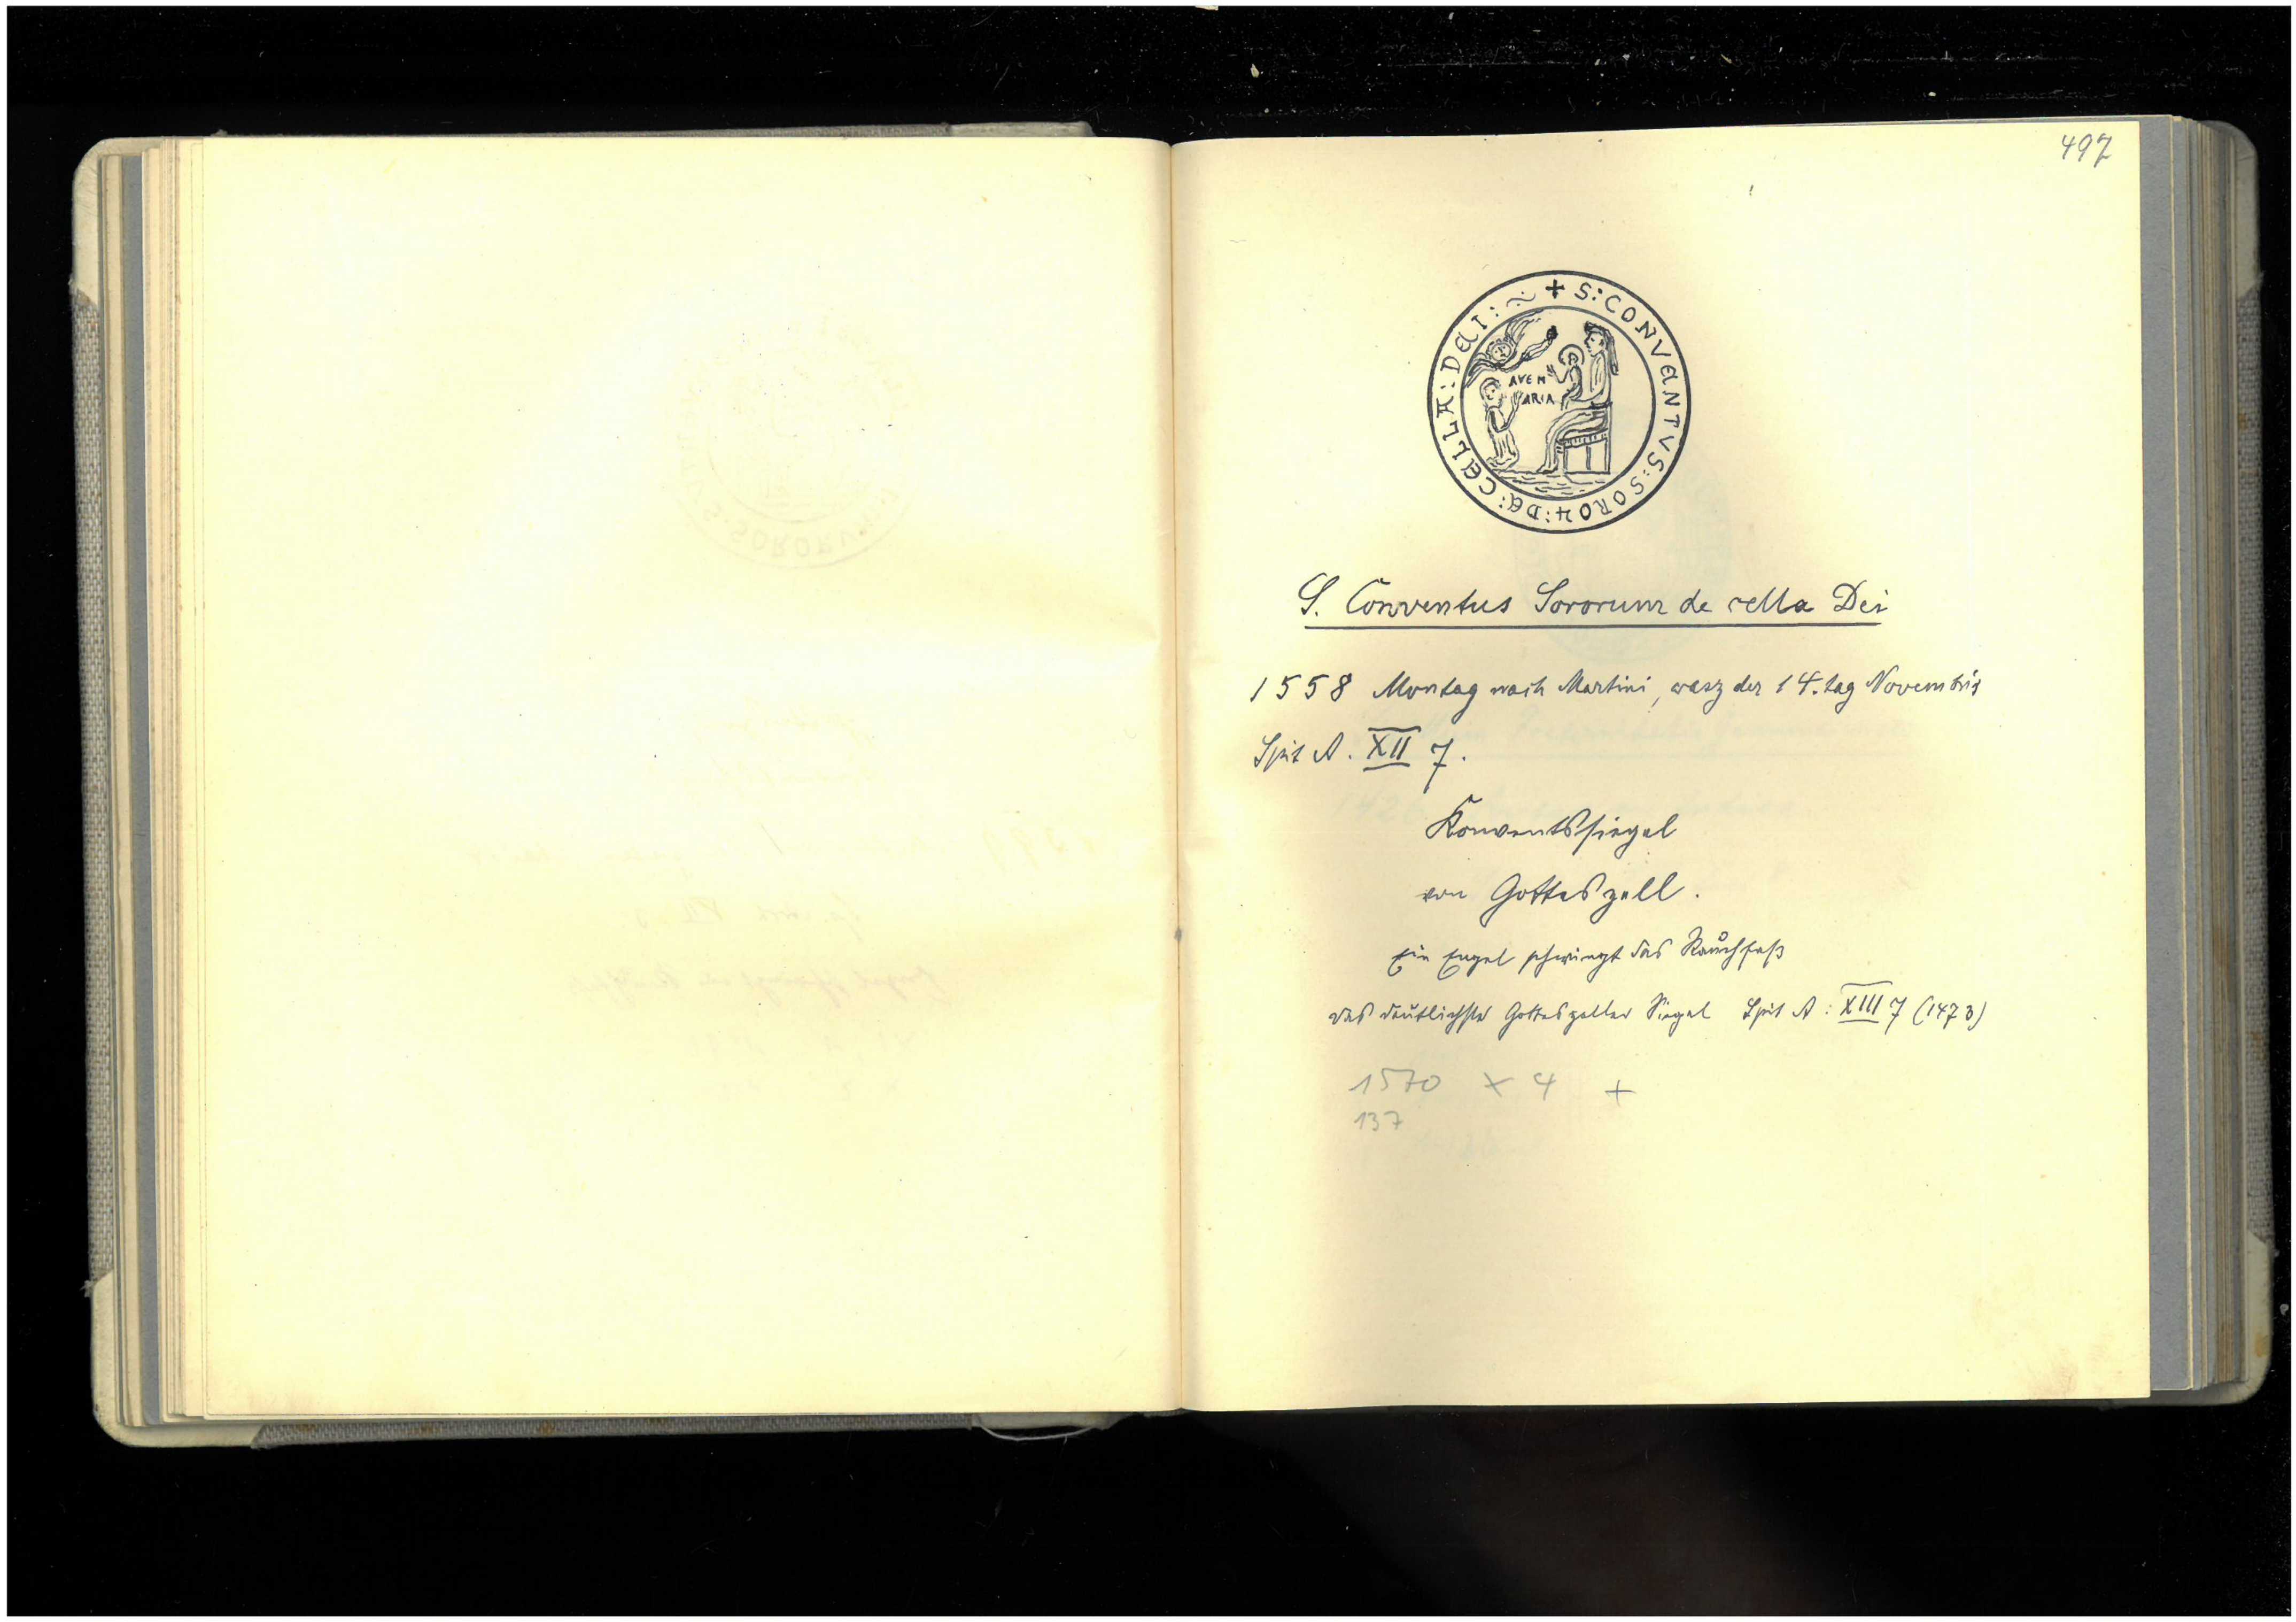 497
+ S: CONVENTVS: SOROꝜ: DE: CELLA: DEI: ~
AVE M
ARIA
S. Conventus Sororum de cella Dei
1558 Montag nach Martini, wasz der 14. tag Novembris
Spit A. XII 7.
Konventssiegel
von Gotteszell.
Ein Engel schwingt das Rauchfaß
das deutlichste Gotteszeller Siegel Spit A: XIII 7 (1473)
1570 X 4 +
137